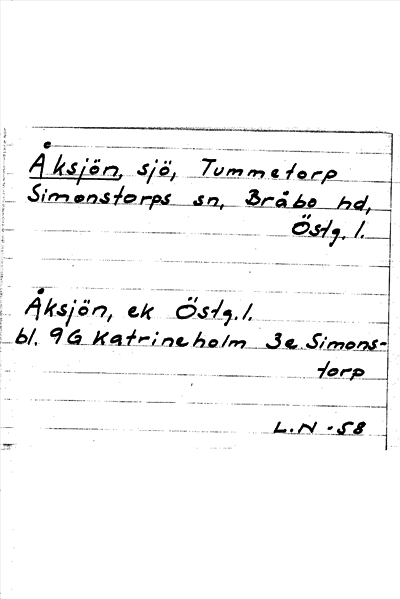 Åksjön, sjö, Tummetorp
Simonstorps sn, Bråbo hd,
Östg. l.
Åksjön, ek Östg. l.
bl. 9G Katrineholm 3e Simons-
torp
L.N -58